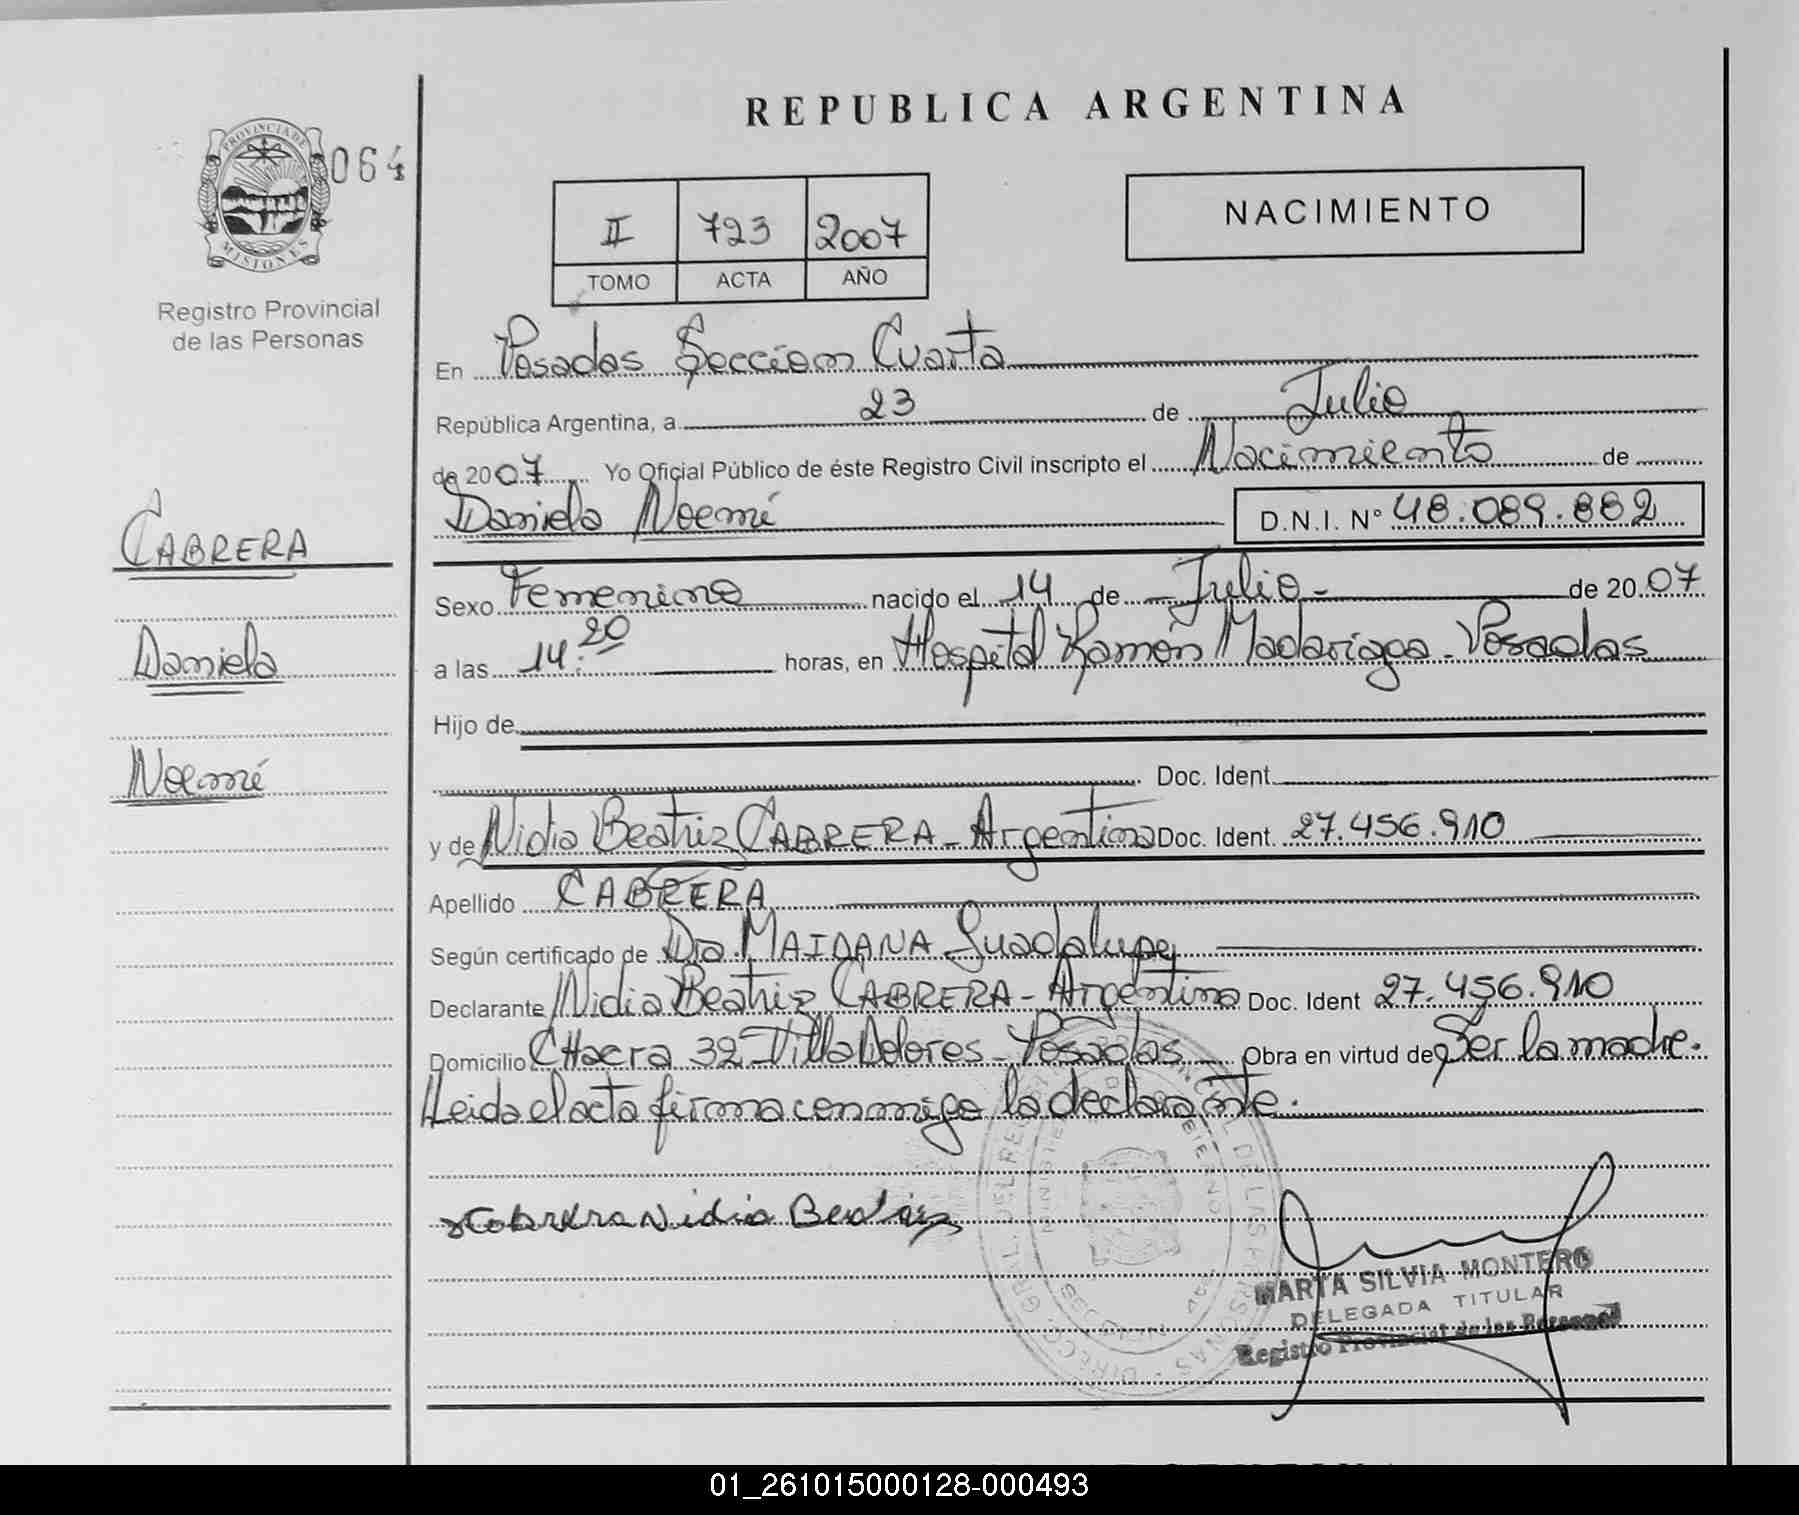 REPUBLICA ARGENTINA
PROVINCIA DE
MISIONES
064
Registro Provincial
de las Personas
II 723 2007
TOMO ACTA AÑO
NACIMIENTO
En Posadas Sección Cuarta
República Argentina, a 23 de Julio
de 2007 Yo Oficial Público de éste Registro Civil inscripto el Nacimiento de
Daniela Noemí D.N.I. Nº 48.089.882
CABRERA
Daniela
Noemí
Sexo Femenino nacido el 14 de Julio - de 2007
a las 14:20 horas, en Hospital Ramón Madariaga - Posadas
Hijo de
Doc. Ident.
y de Nidia Beatriz CABRERA - Argentina Doc. Ident. 27.456.910
Apellido CABRERA
Según certificado de Dra. MAIDANA Guadalupe
Declarante Nidia Beatriz CABRERA - Argentina Doc. Ident 27.456.910
Domicilio CHacra 32 Villa Dolores - Posadas Obra en virtud de Ser la madre.
Leida el acta firma conmigo la declarante.
Cabrera Nidia Beatriz
MARTA SILVIA MONTERO
DELEGADA TITULAR
Registro Provincial de las Personas
01_261015000128-000493